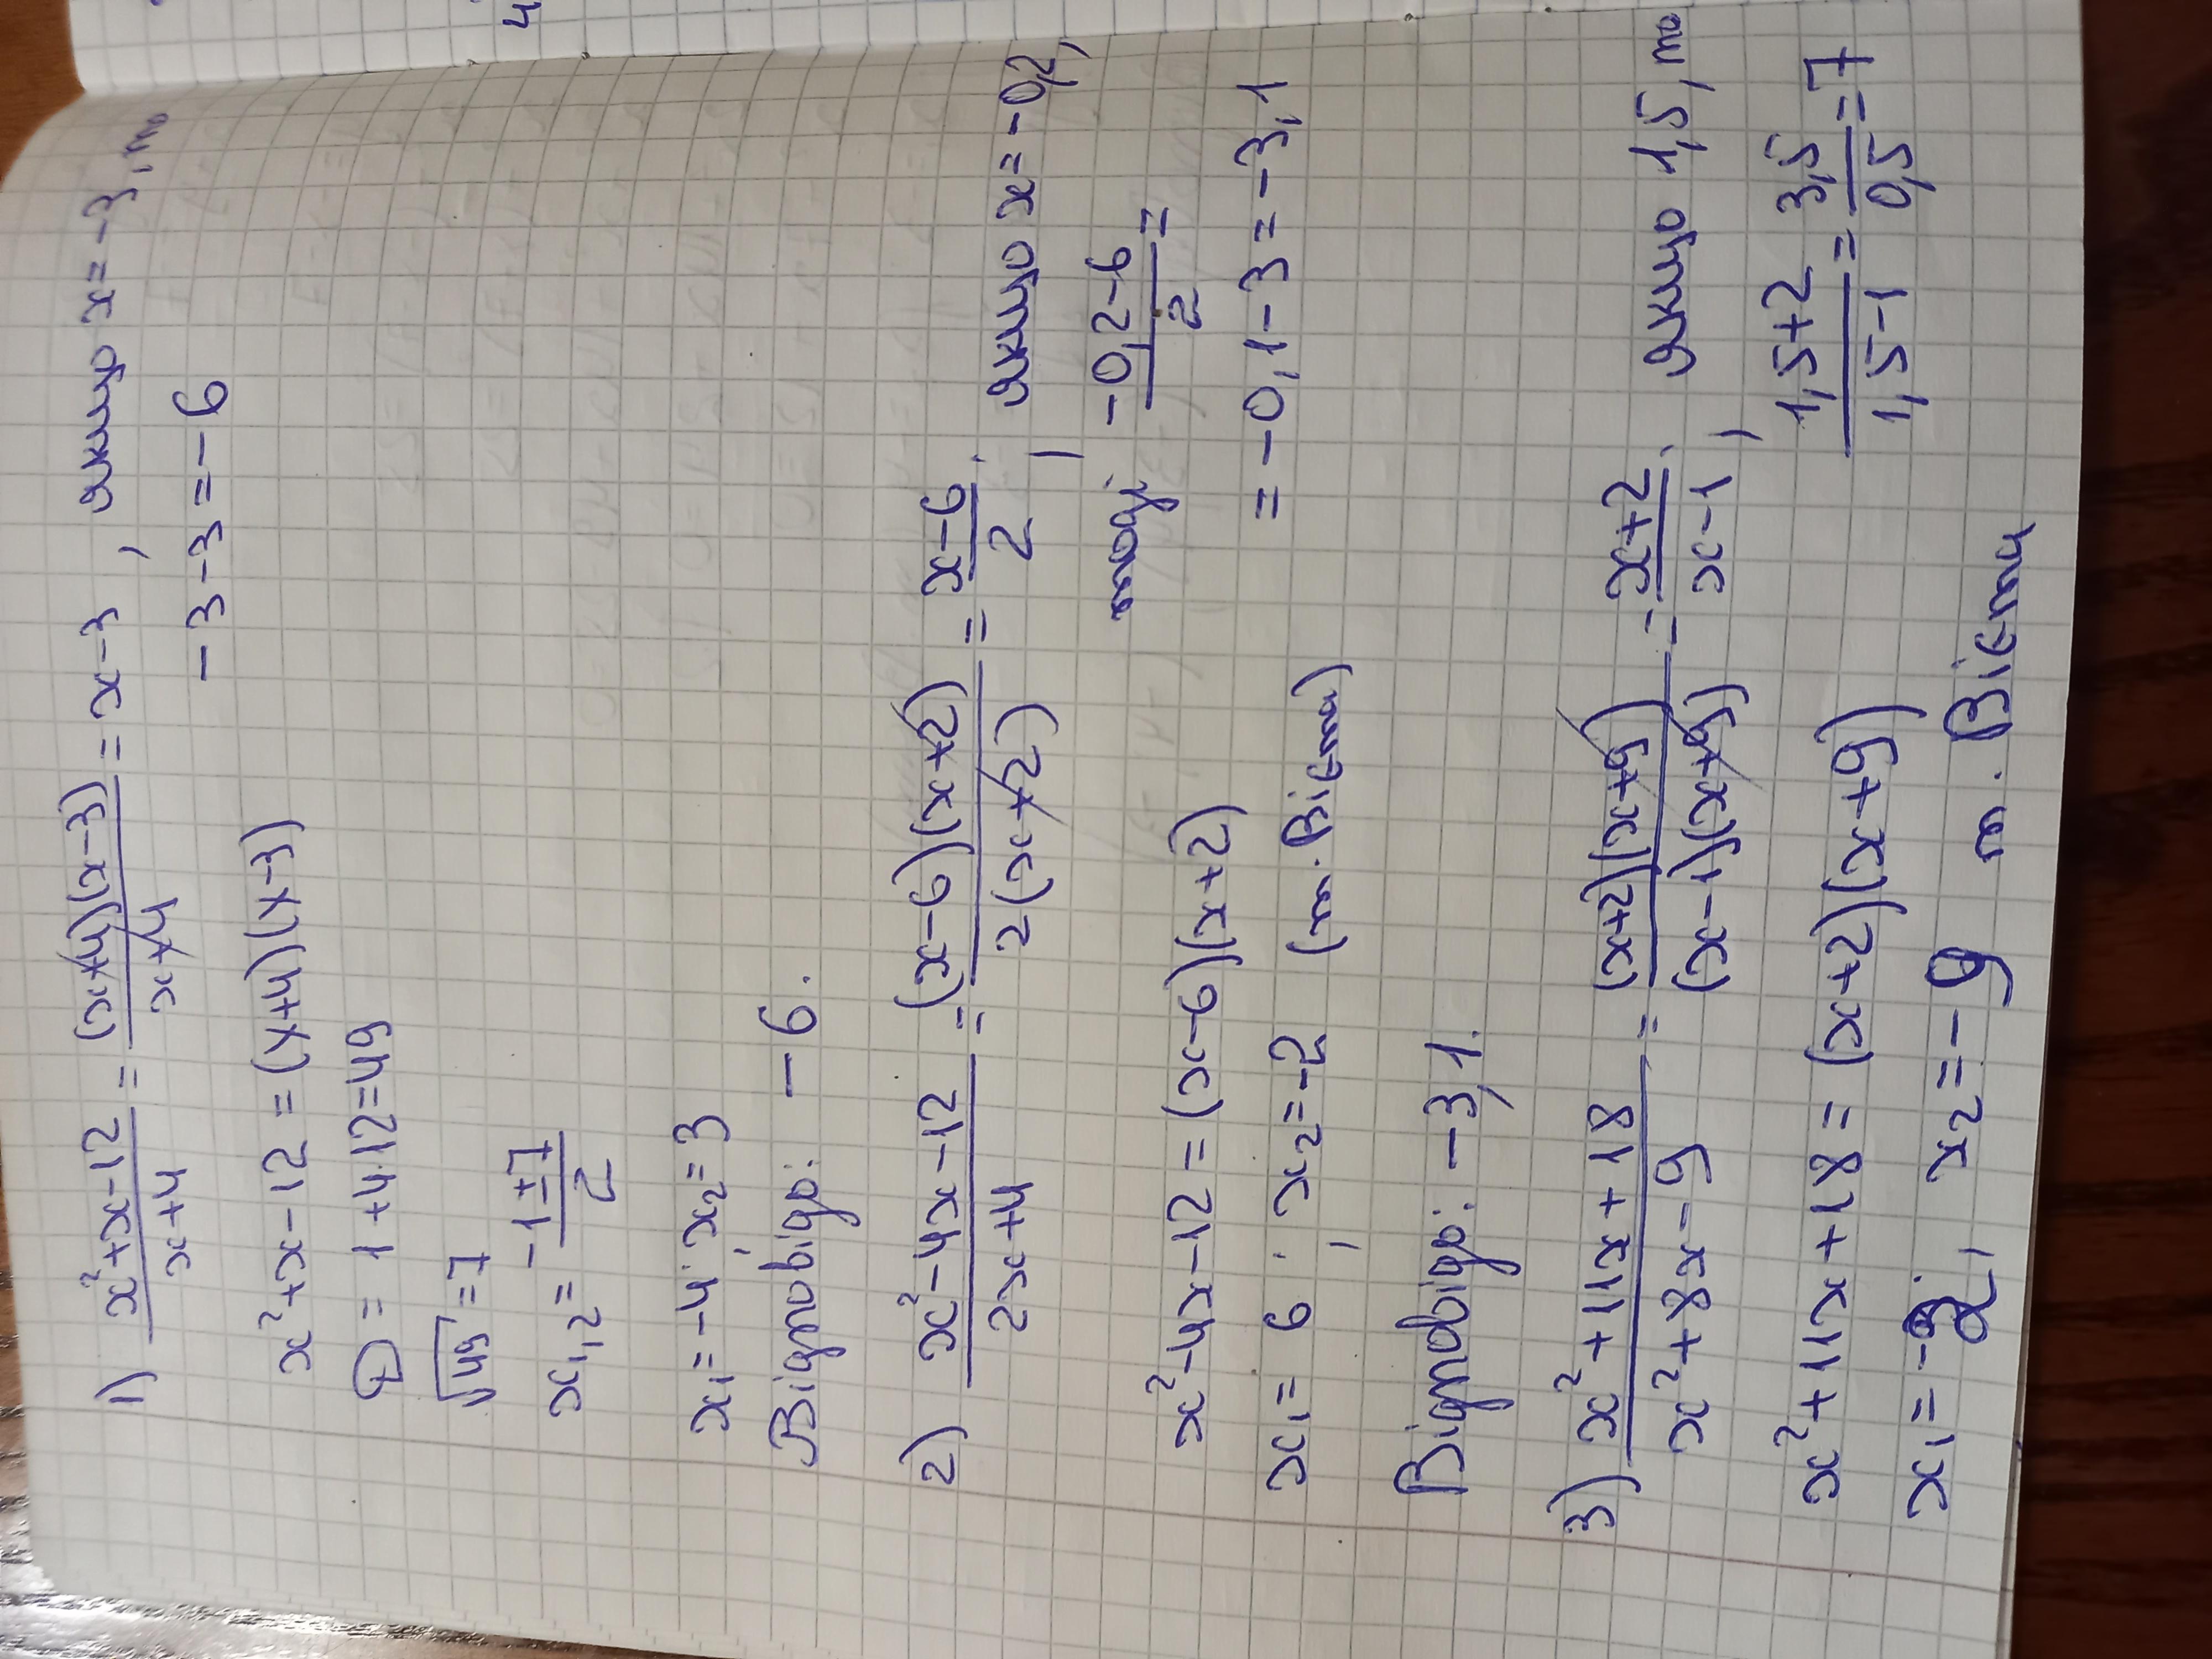 1) (x²+x-12)/(x+4) = ((x+4)(x-3))/(x+4) = x-3, якщо x=-3, то
-3-3=-6
x²+x-12=(x+4)(x-3)
D=1+4·12=49
√49=7
x₁,₂=(-1±7)/2
x₁=-4; x₂=3
Відповідь: -6.
2) (x²-4x-12)/(2x+4) = ((x-6)(x+2))/(2(x+2)) = (x-6)/2; якщо x=-0,2,
тоді (-0,2-6)/2=
x²-4x-12=(x-6)(x+2)
=-0,1-3=-3,1
x₁=6; x₂=-2 (т.Вієта)
Відповідь: -3,1.
3) (x²+11x+18)/(x²+8x-9) = ((x+2)(x+9))/((x-1)(x+9)) = (x+2)/(x-1); якщо 1,5, то
(1,5+2)/(1,5-1)=3,5/0,5=7
x²+11x+18=(x+2)(x+9)
x₁=-2; x₂=-9 т. Вієта
4